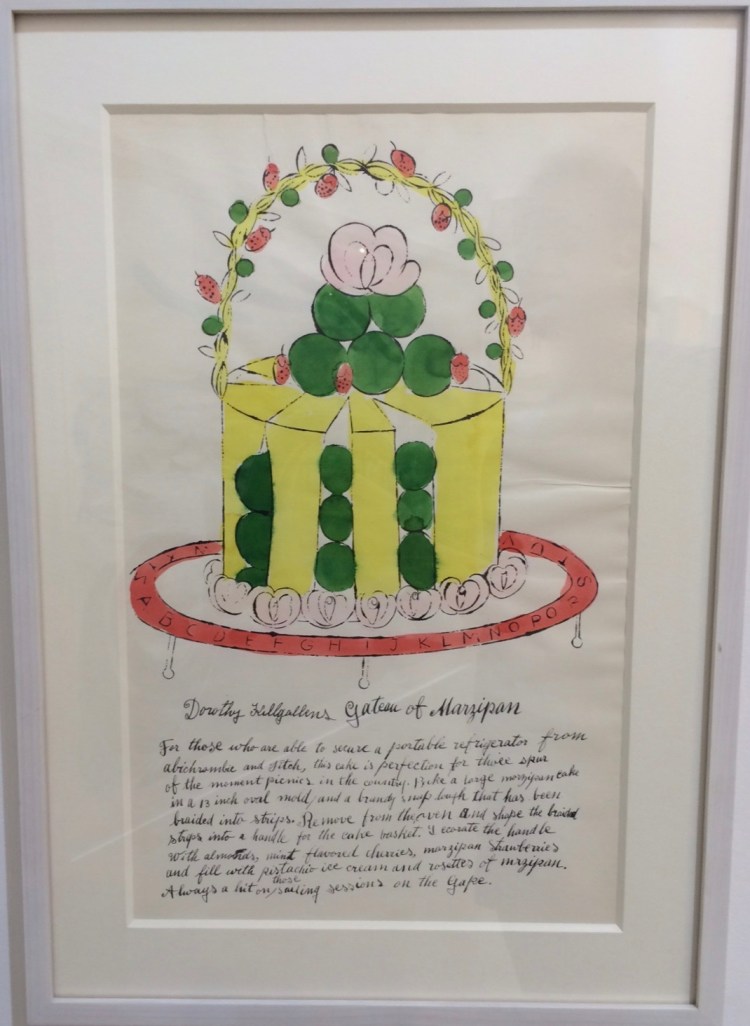 A B C D E F G H I J K L M N O P Q
Dorothy Killgallens Gateau of Marzipan
For those who are able to secure a portable refrigerator from
abichrombie and fitch, this cake is perfection for those spur
of the moment picnics in the country. Bake a large marzipan cake
in a 13 inch oval mold, and a brandy snap bough that has been
braided into strips. Remove from the oven and shape the braided
strips into a handle for the cake basket. Decorate the handle
with almonds, mint flavored cherries, marzipan strawberries
and fill with pistachio ice cream and rosettes of mrzipan.
Always a hit on those sailing sessions on the Cape.